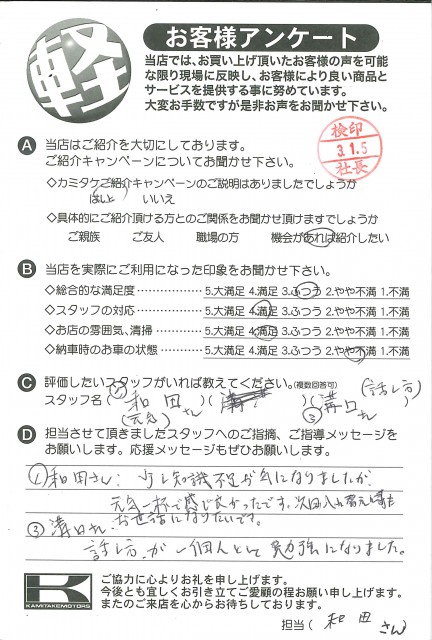 軽
お客様アンケート
当店では、お買い上げ頂いたお客様の声を可能
な限り現場に反映し、お客様により良い商品と
サービスを提供する事に努めています。
大変お手数ですが是非お声をお聞かせ下さい。
検印
3.1.5
社長
A 当店はご紹介を大切にしております。
ご紹介キャンペーンについてお聞かせ下さい。
◇カミタケご紹介キャンペーンのご説明はありましたでしょうか
はい いいえ
◇具体的にご紹介頂ける方とのご関係をお聞かせ頂けますでしょうか
ご親族 ご友人 職場の方 機会があれば紹介したい
B 当店を実際にご利用になった印象をお聞かせ下さい。
◇総合的な満足度・・・・・・・・・・・ 5.大満足 4.満足 3.ふつう 2.やや不満 1.不満
◇スタッフの対応・・・・・・・・・・・ 5.大満足 4.満足 3.ふつう 2.やや不満 1.不満
◇お店の雰囲気、清掃・・・・・・・ 5.大満足 4.満足 3.ふつう 2.やや不満 1.不満
◇納車時のお車の状態・・・・・・・ 5.大満足 4.満足 3.ふつう 2.やや不満 1.不満
C 評価したいスタッフがいれば教えてください。(複数回答可)
(話し方)
スタッフ名 ( 和田さん )( )( ③ 溝口さん )
(元気)
D 担当させて頂きましたスタッフへのご指摘、ご指導メッセージを
お願いします。応援メッセージもぜひお願いします。
和田さん: 少し知識不足が気になりましたが、
元気一杯で感じ良かったです。次回入れ替え時も
お世話になりたいです。
③ 溝口さん:
話し方が一個人として勉強になりました。
K
KAMITAKEMOTORS
ご協力に心よりお礼を申し上げます。
今後とも宜しくお引立てご愛顧の程お願い申し上げます。
またのご来店を心からお待ちしております。
担当 ( 和田さん )